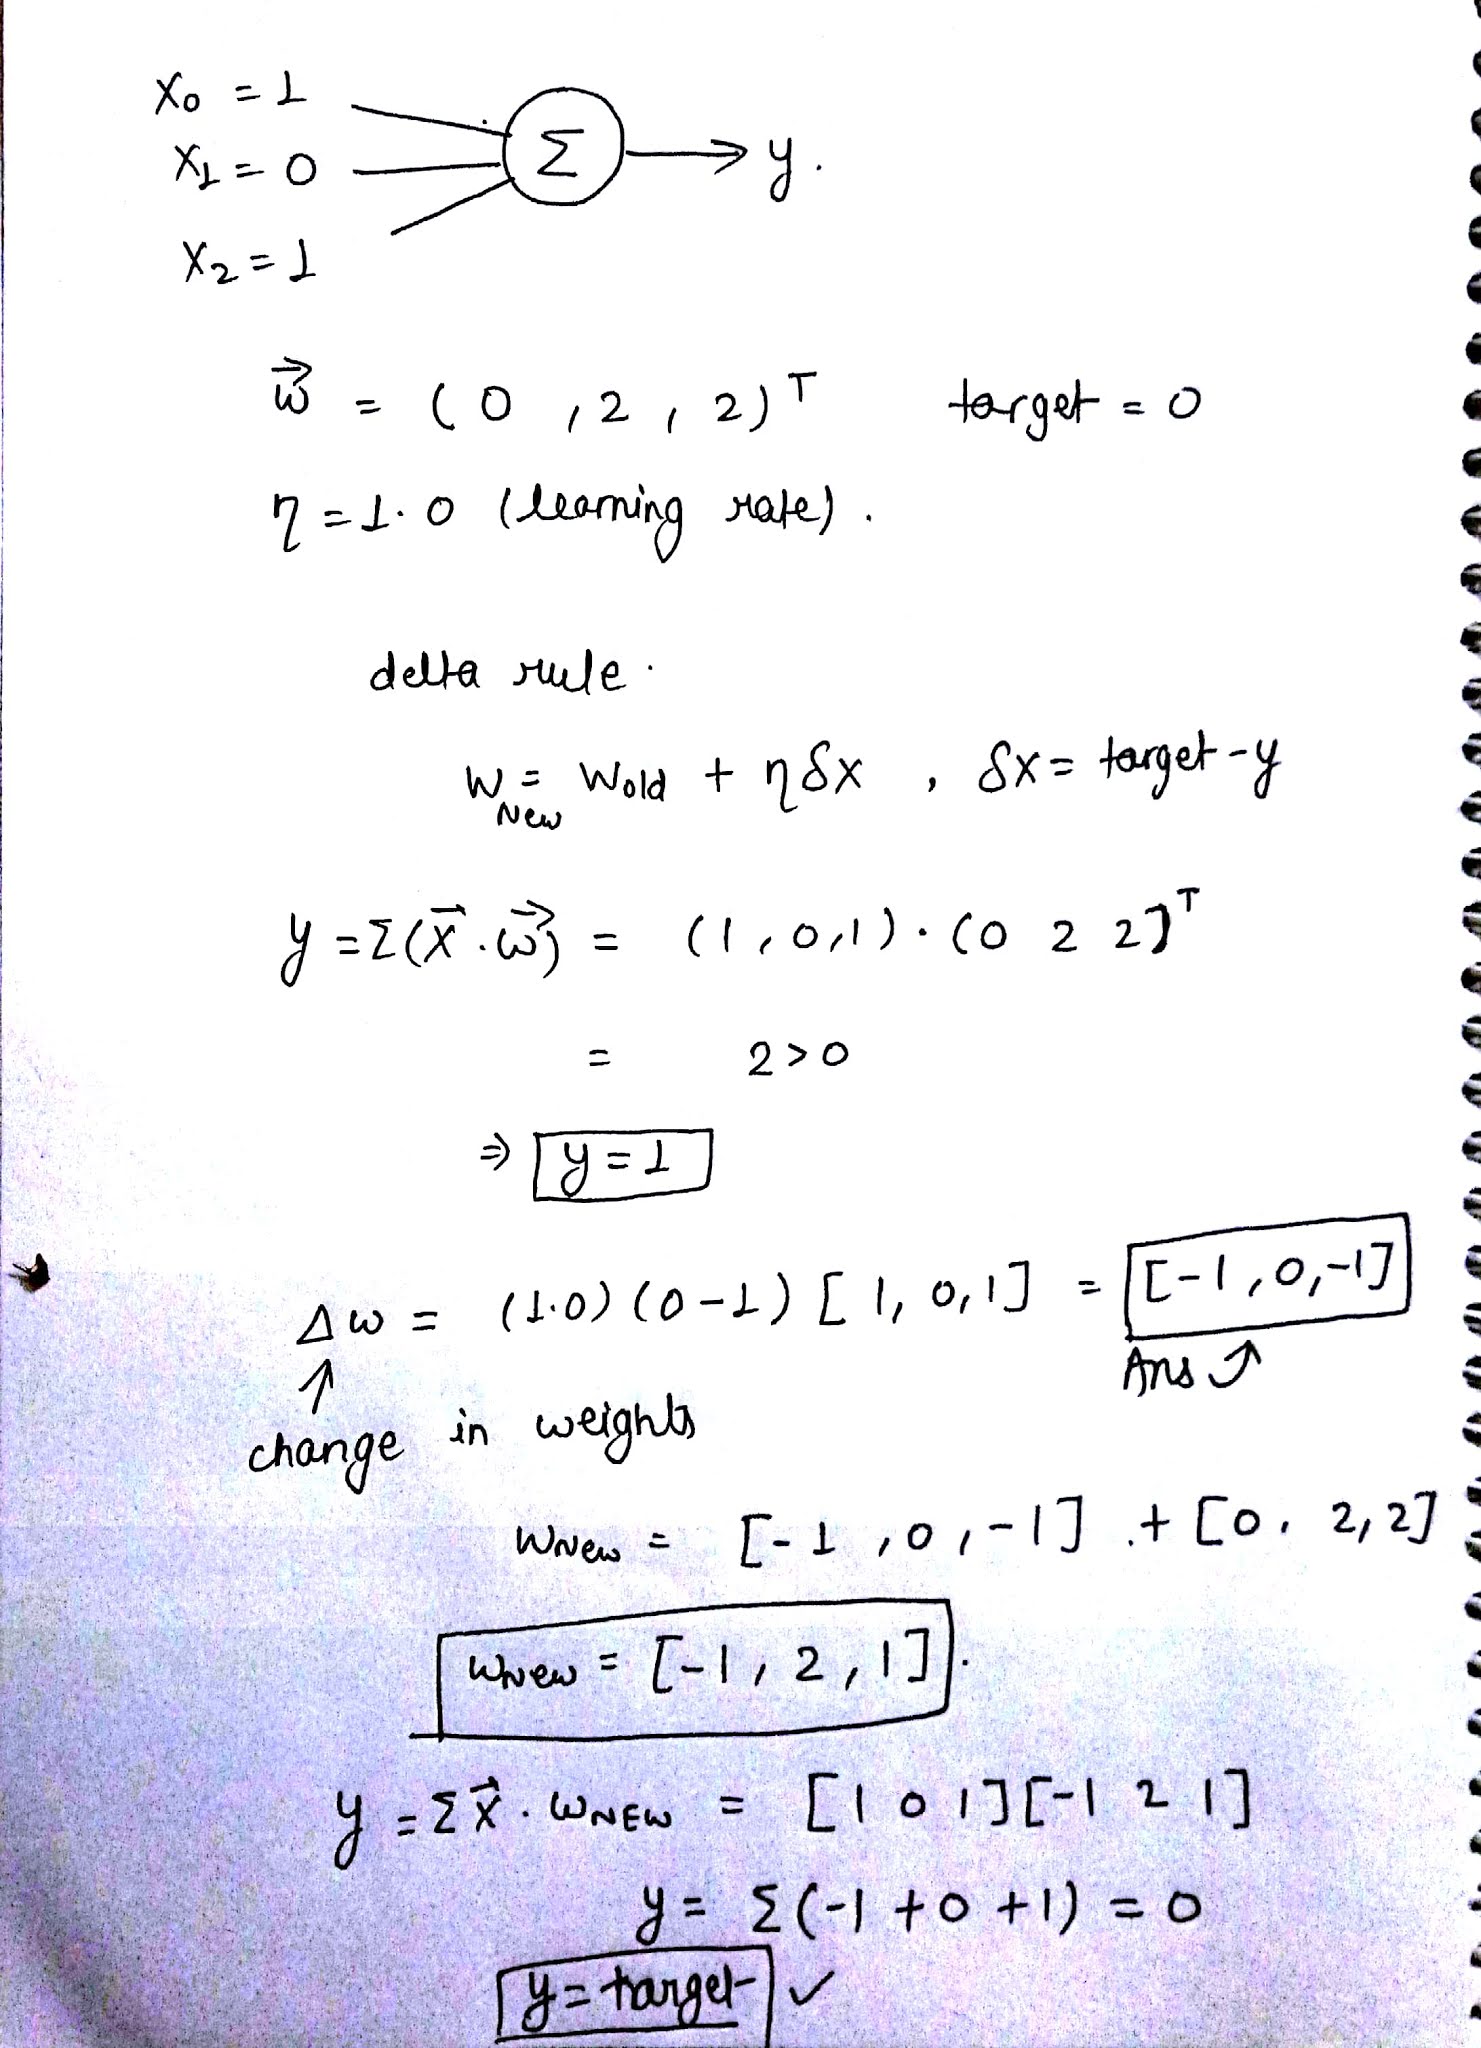 X₀ = 1
X₁ = 0
Σ → y.
X₂ = 1
w⃗ = (0 , 2 , 2)ᵀ target = 0
η = 1.0 (learning rate).
delta rule.
W_New = Wold + ηδx , δx = target - y
y = Σ(x⃗ . w⃗) = (1, 0, 1) . (0 2 2)ᵀ
= 2 > 0
⇒ y = 1
Δw = (1.0) (0 - 1) [1, 0, 1] = [-1, 0, -1]
↑ Ans ↑
change in weights
WNew = [-1 , 0 , -1] + [0, 2, 2]
WNew = [-1, 2, 1].
y = Σx⃗ . WNEW = [1 0 1][-1 2 1]
y = Σ(-1 + 0 + 1) = 0
y = target ✓